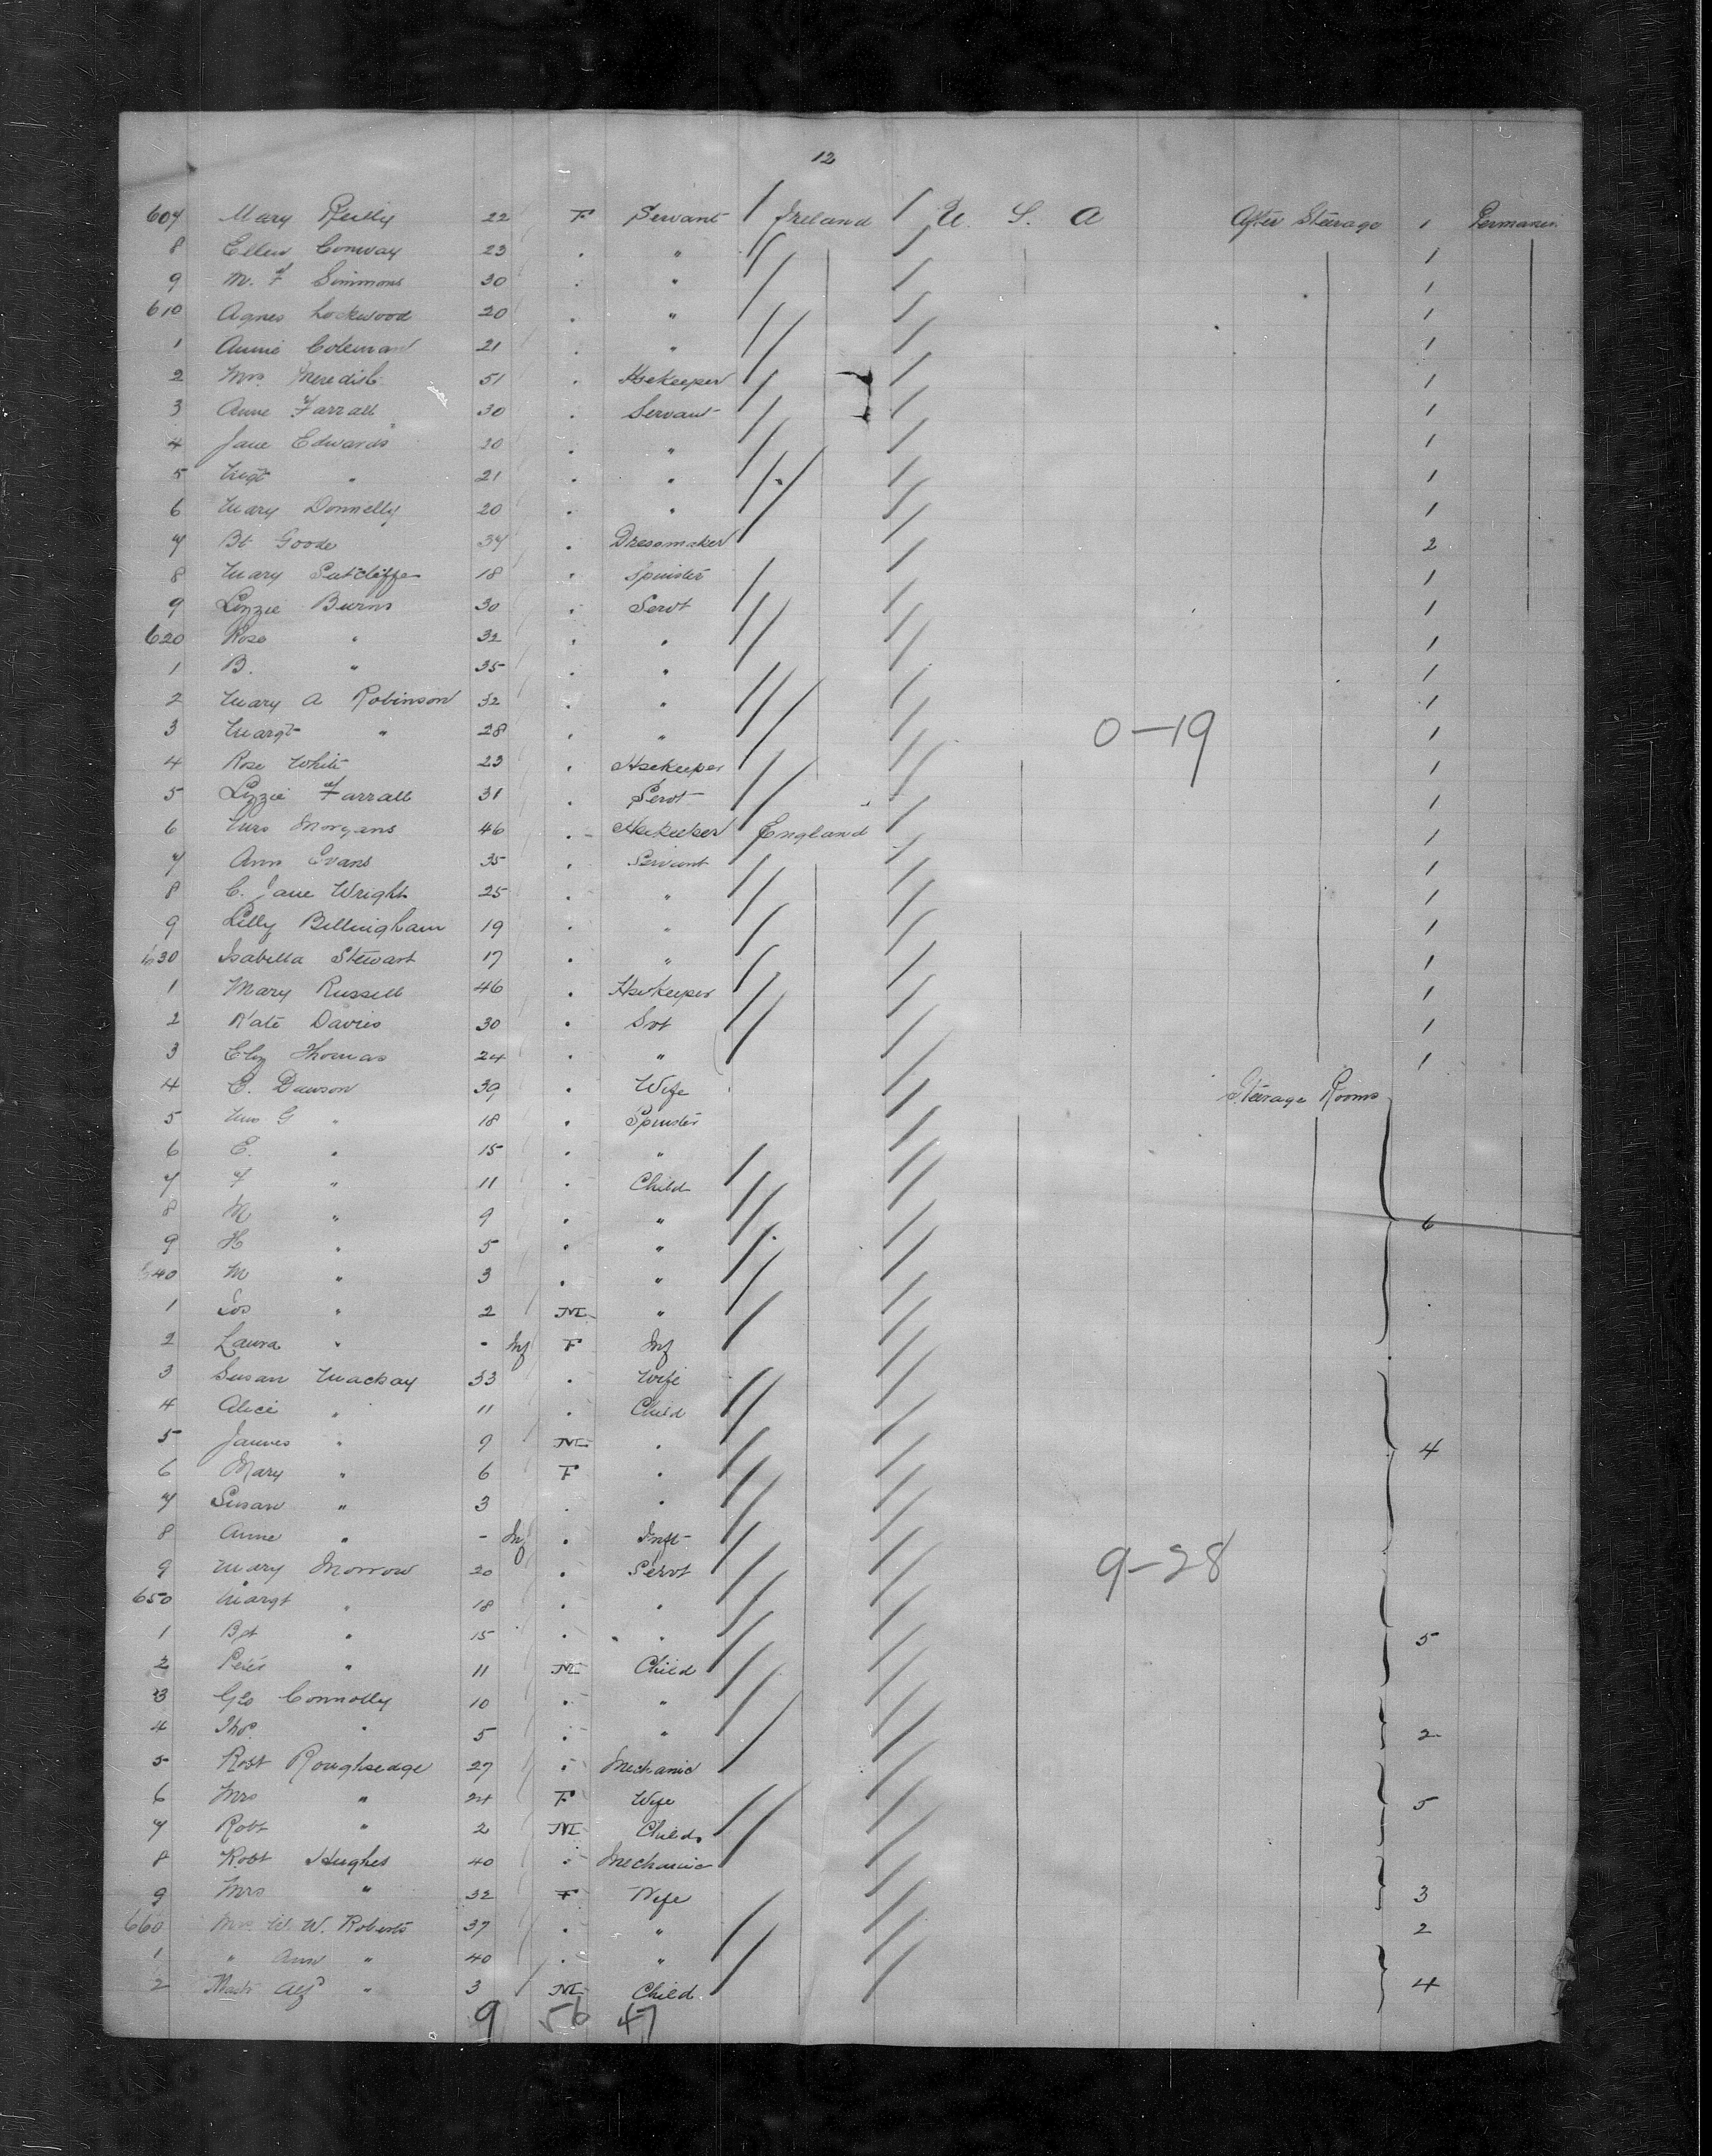 12
607 Mary Reilly 22 F Servant Ireland U. S. A After Steerage 1
8 Ellen Conway 23 . " 1
9 M. F Simmons 30 . " 1
610 Agnes Lockwood 20 . " 1
1 Annie Coleman 21 . " 1
2 Mrs. Meredith 51 . Hsekeeper 1
3 Anne Farrall 30 . Servant 1
4 Jane Edwards 20 . " 1
5 Mgt " 21 . " 1
6 Mary Donnelly 20 . " 1
7 Bt Goode 37 . Dressmaker 2
8 Mary Sutcliffe 18 . Spinster 1
9 Lizzie Burns 30 . Servt 1
620 Rose " 32 . " 1
1 B. " 35 . " 1
2 Mary A Robinson 32 . " 1
3 Margt " 28 . " 0-19 1
4 Rose White 23 . Hsekeeper 1
5 Lizzie Farrall 31 . Servt 1
6 Mrs Morgans 46 . Hsekeeper England 1
7 Ann Evans 35 . Servant 1
8 C. Jane Wright 25 . " 1
9 Lilly Billingham 19 . " 1
630 Isabella Stewart 17 . " 1
1 Mary Russell 46 . Hsekeeper 1
2 Kate Davies 30 . Svt 1
3 Eliz Thomas 24 . " 1
4 C. Dawson 39 . Wife Steerage Rooms
5 G " 18 . Spinster
6 E. " 15 . "
7 F " 11 . Child
8 M " 9 . " 6
9 H " 5 . "
640 M " 3 . "
1 " 2 M "
2 Laura " - Inf F Inf
3 Susan Mackay 33 . Wife
4 Alice " 11 . Child
5 James " 9 M . 4
6 Mary " 6 F .
7 Susan " 3 . .
8 Anne " - Inf . Inft
9 Mary Morrow 20 . Servt 9-28
650 Margt " 18 . .
1 Bgt " 15 . . 5
2 Peter " 11 M Child
3 Geo Connolly 10 . "
4 Thos " 5 . " 2
5 Robt Roughsedge 27 . Mechanic
6 Mrs " 24 F Wife 5
7 Robt " 2 M Child
8 Robt Hughes 40 . Mechanic
9 Mrs " 32 F Wife 3
660 Mrs W. W. Roberts 37 . " 2
1 " Ann " 40 . "
2 Mastr Alfd " 3 M Child 4
9 56 47